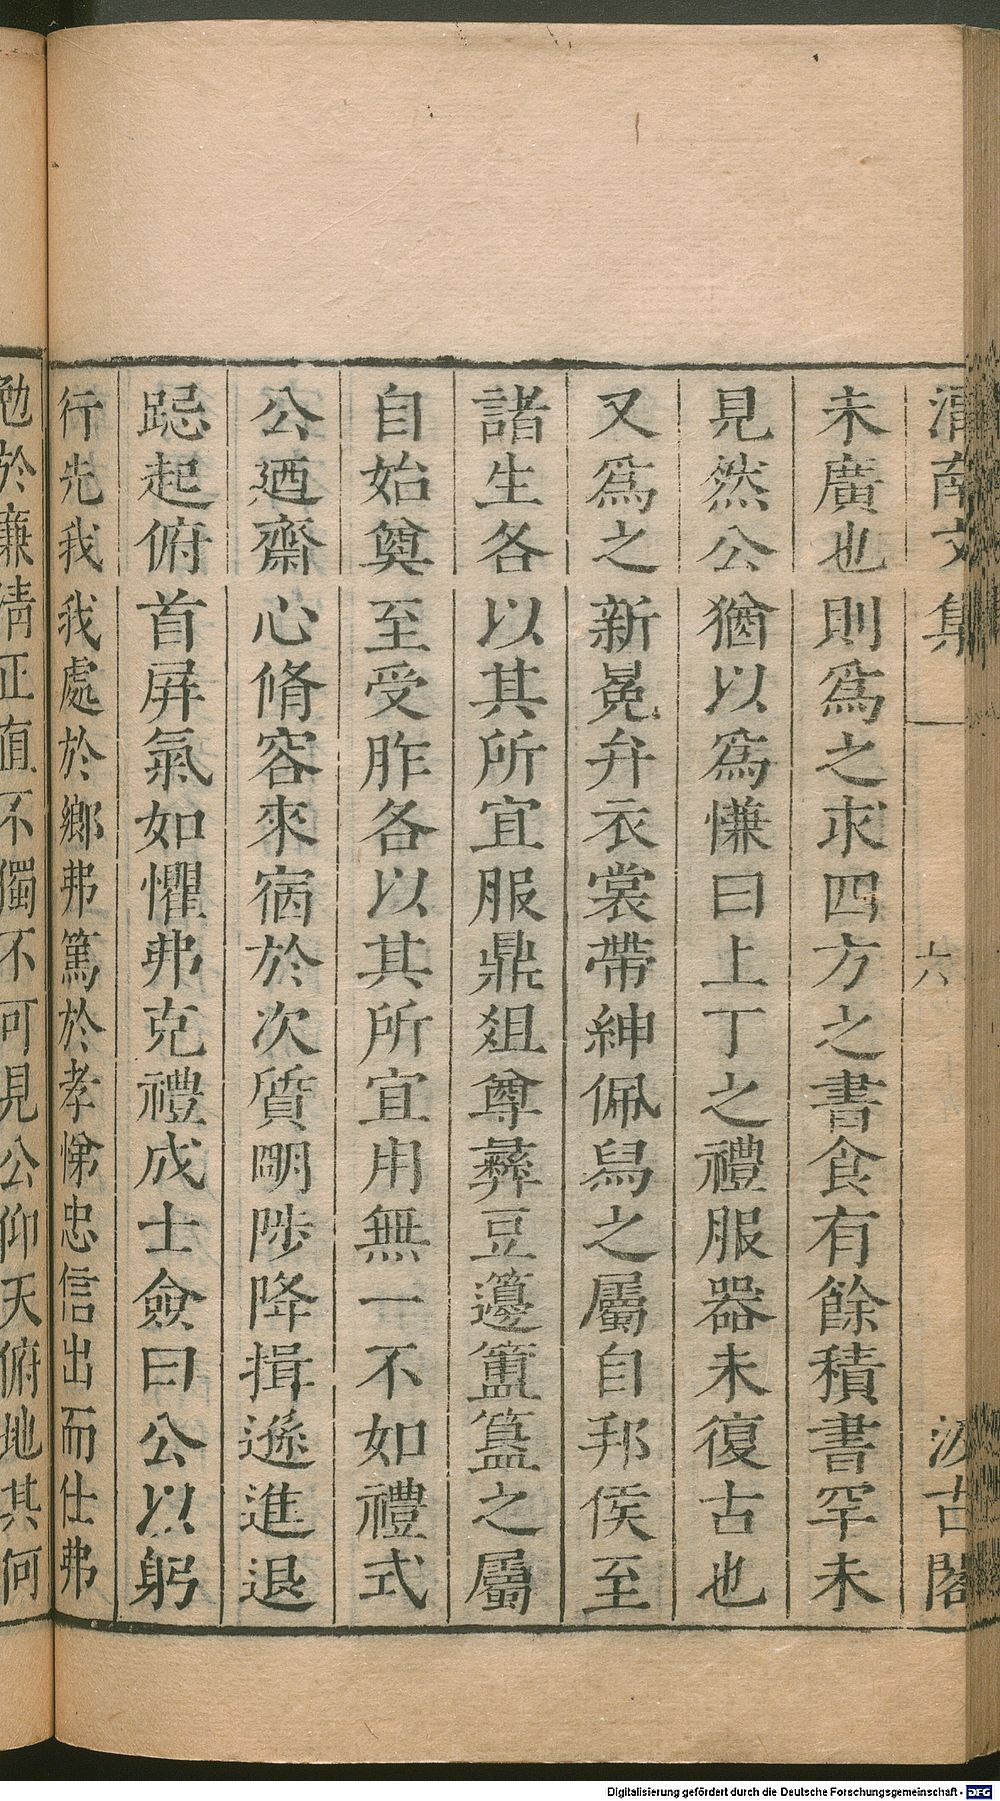 渭南文集 六 汲古閣
未廣也則爲之求四方之書食有餘積書罕未
見然公猶以爲慊曰上丁之禮服器未復古也
又爲之新冕弁衣裳帶紳佩舄之屬自邦侯至
諸生各以其所宜服鼎俎尊彝豆籩簠簋之屬
自始奠至受胙各以其所宜用無一不如禮式
公廼齋心脩容來宿於次質明陟降揖遜進退
跽起俯首屏氣如懼弗克禮成士僉曰公以躬
行先我我處於鄉弗篤於孝悌忠信出而仕弗
勉於廉清正直不獨不可見公仰天俯地其何
Digitalisierung gefördert durch die Deutsche Forschungsgemeinschaft - DFG